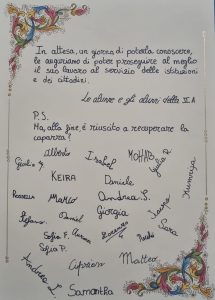 In attesa, un giorno di poterla conoscere,
le auguriamo di poter proseguire al meglio
il suo lavoro al servizio delle istituzioni
e dei cittadini.
Le alunne e gli alunni della V.A
P.S.
Ma, alla fine, è riuscito a recuperare la
caparra?
Alberto Isabel MOHAB Julia P.
Giulia
KEIRA Daniele Kumriya
ROSSELLA MARCO Andrea S.
Stefano Daniel Giorgia Ianna
Sofia F. Aurora Lorenzo Paolo Sara
Sofia P.
Andrea L. Ciprian Matteo
SAMANTHA